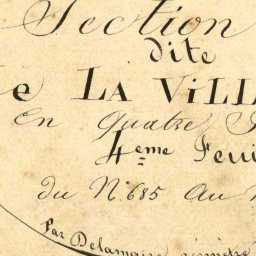 Section
dite
e LA VILL
En Quatre F
4eme Feui
du N° 685 au
Par Delamaire géomètre